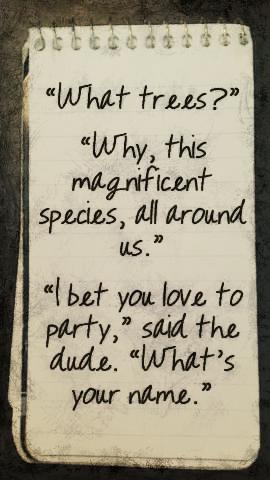 “What trees?”
“Why, this
magnificent
species, all around
us.”
“I bet you love to
party,” said the
dude. “What’s
your name.”